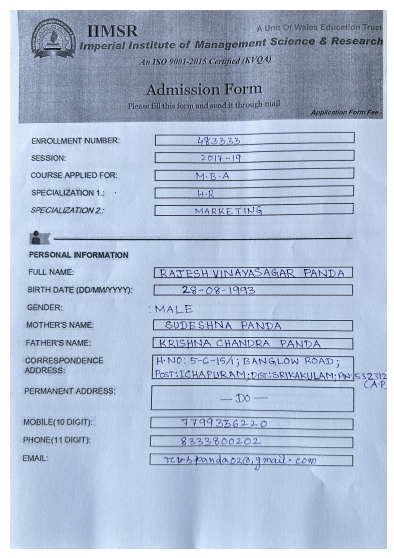 IIMSR
A Unit Of Wales Education Trust
Imperial Institute of Management Science & Research
An ISO 9001-2015 Certified (KVQA)
Admission Form
Please fill this form and send it through mail
Application Form Fee -
ENROLLMENT NUMBER: 483333
SESSION: 2017-19
COURSE APPLIED FOR: M.B.A
SPECIALIZATION 1.: H.R
SPECIALIZATION 2.: MARKETING
PERSONAL INFORMATION
FULL NAME: RAJESH VINAYASAGAR PANDA
BIRTH DATE (DD/MM/YYYY): 28-08-1993
GENDER: : MALE
MOTHER'S NAME: SUDESHNA PANDA
FATHER'S NAME: KRISHNA CHANDRA PANDA
CORRESPONDENCE H.NO: 5-6-15/1; BANGLOW ROAD;
ADDRESS: POST: ICHAPURAM; DIST: SRIKAKULAM; PIN: 532312
(A.P.
PERMANENT ADDRESS: — DO —
MOBILE(10 DIGIT): 7799336220
PHONE(11 DIGIT): 8333800202
EMAIL: rvspanda02@gmail.com